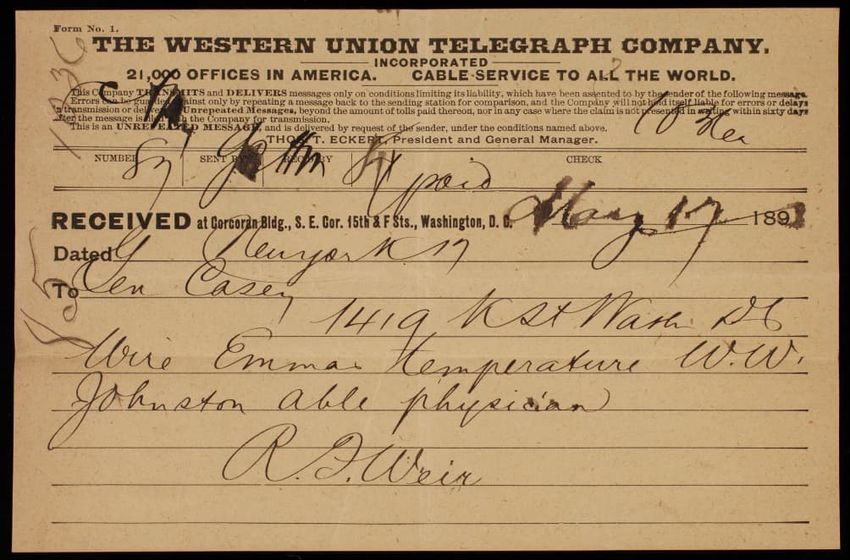 Form No. 1.
THE WESTERN UNION TELEGRAPH COMPANY.
INCORPORATED
21,000 OFFICES IN AMERICA. CABLE SERVICE TO ALL THE WORLD.
This Company TRANSMITS and DELIVERS messages only on conditions limiting its liability, which have been assented to by the sender of the following message.
Errors can be guarded against only by repeating a message back to the sending station for comparison, and the Company will not hold itself liable for errors or delays
in transmission or delivery of Unrepeated Messages, beyond the amount of tolls paid thereon, nor in any case where the claim is not presented in writing within sixty days
after the message is filed with the Company for transmission.
This is an UNREPEATED MESSAGE, and is delivered by request of the sender, under the conditions named above.
THOS. T. ECKERT, President and General Manager.
NUMBER SENT BY REC'D BY CHECK
paid
RECEIVED at Corcoran Bldg., S. E. Cor. 15th & F Sts., Washington, D. C. May 17 189
Dated Newyork 17
To Gen Casey
1419 K St Wash DC
Wire Emmas temperature W.W.
Johnston able physician
R. F. Weir